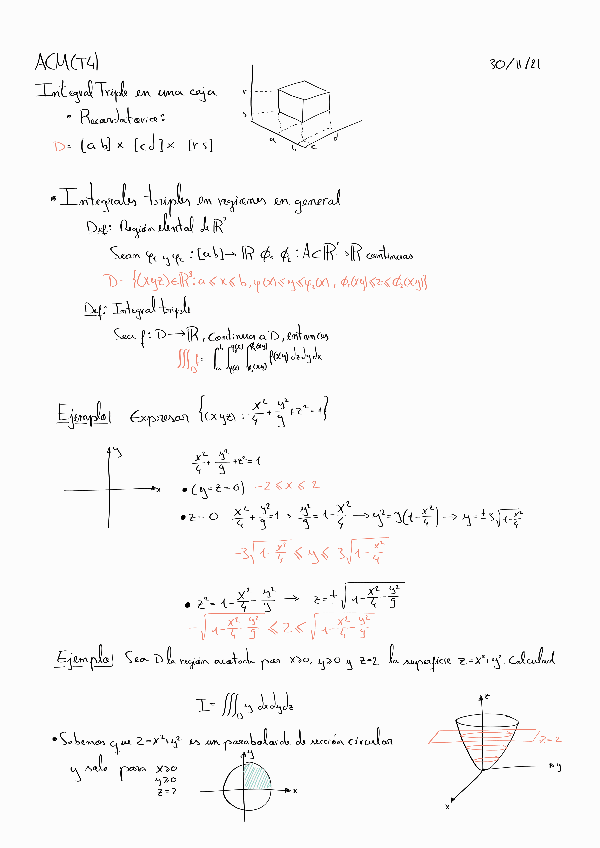 ACM(T4) 30/11/21
Integral Triple en una caja
• Recordatorio:
D = [a b] x [c d] x [r s]
r
s
a b c d
• Integrales triples en regiones en general
Def: Región elental de ℝ³
Sean φ₁ y φ₂ : [a b] → ℝ ϕ₁ ϕ₂ : A⊂ℝ² → ℝ continuas
D = {(xyz)∈ℝ³ : a ≤ x ≤ b, φ₁(x) ≤ y ≤ φ₂(x), ϕ₁(xy) ≤ z ≤ ϕ₂(xy)}
Def: Integral triple
Sea f: D → ℝ, continua a D, entonces
∭_D f = ∫ ∫ ∫ f(xy) dz dy dx
Ejemplo| Expresar {(xyz) : x²/4 + y²/9 + z² = 1}
y
x
x²/4 + y²/9 + z² = 1
• (y=z=0) -2 ≤ x ≤ 2
• z=0 x²/4 + y²/9 = 1 → y²/9 = 1 - x²/4 → y² = 9(1 - x²/4) → y = ±3√(1 - x²/4)
-3√(1 - x²/4) ≤ y ≤ 3√(1 - x²/4)
• z² = 1 - x²/4 - y²/9 → z = ±√(1 - x²/4 - y²/9)
-√(1 - x²/4 - y²/9) ≤ z ≤ √(1 - x²/4 - y²/9)
Ejemplo| Sea D la región acotada por x≥0, y≥0 y z=2 la superficie z = x²+y². Calculad
I = ∭_D y dxdydz
• Sabemos que z = x²+y² es un paraboloide de sección circular
y solo para x≥0
y≥0
z=2
y
x
z
z=2
y
x